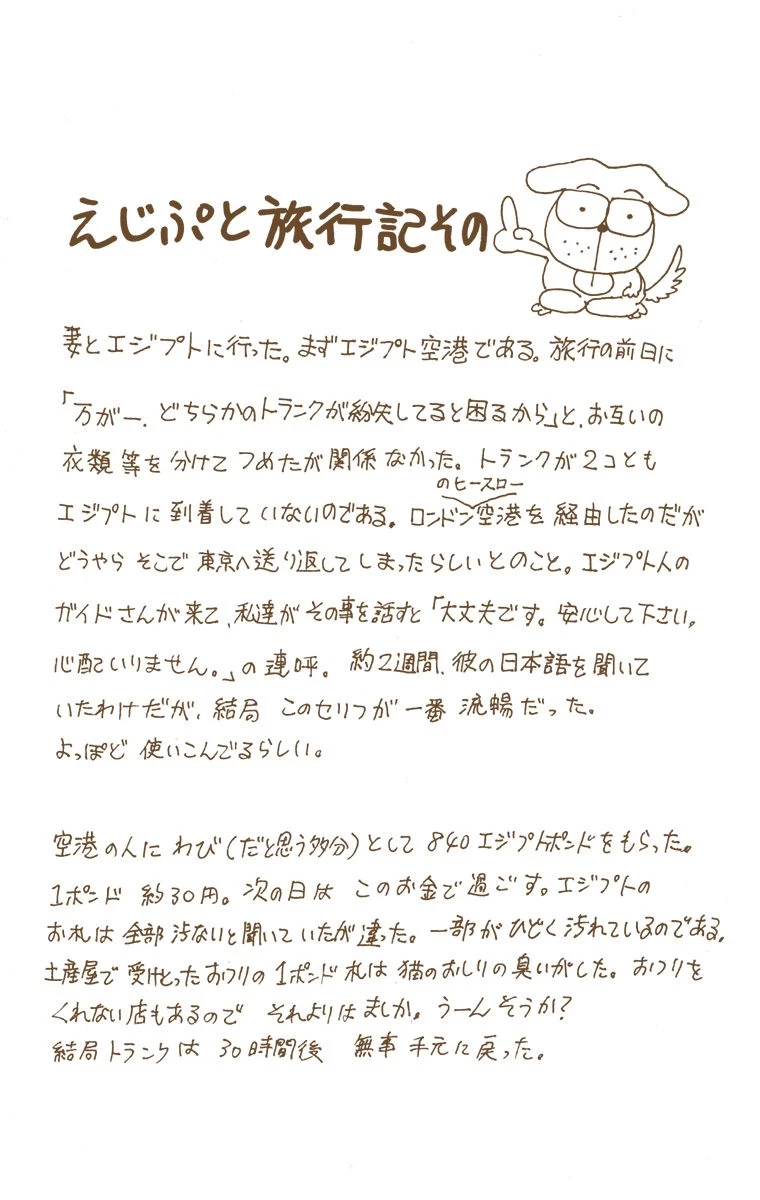 えじぷと旅行記その
妻とエジプトに行った。まずエジプト空港である。旅行の前日に
「万が一、どちらかのトランクが紛失してると困るから」と、お互いの
衣類等を分けてつめたが関係なかった。トランクが2コとも
エジプトに到着していないのである。ロンドンのヒースロー空港を経由したのだが
どうやらそこで東京へ送り返してしまったらしいとのこと。エジプト人の
ガイドさんが来て、私達がその事を話すと「大丈夫です。安心して下さい。
心配いりません。」の連呼。約2週間、彼の日本語を聞いて
いたわけだが、結局このセリフが一番流暢だった。
よっぽど使いこんでるらしい。
空港の人にわび(だと思う多分)として840エジプトポンドをもらった。
1ポンド約30円。次の日はこのお金で過ごす。エジプトの
お札は全部汚ないと聞いていたが違った。一部がひどく汚れているのである。
土産屋で受けとったおつりの1ポンド札は猫のおしりの臭いがした。おつりを
くれない店もあるのでそれよりはましか。うーんそうか?
結局トランクは30時間後無事手元に戻った。